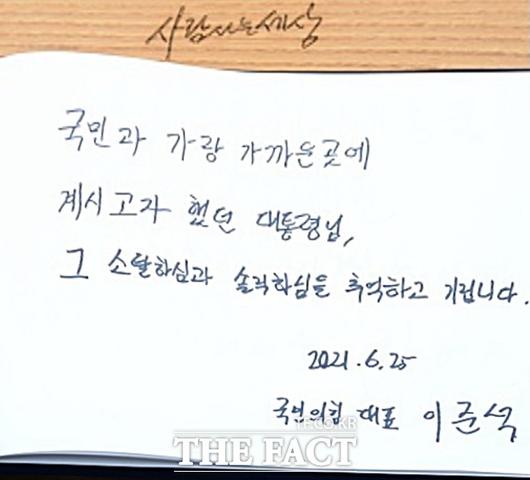 사람사는세상
국민과 가장 가까운곳에
계시고자 했던 대통령님,
그 소탈하심과 솔직하심을 추억하고 기립니다.
2021.6.25
국민의힘 대표 이준석
TF.CO.KR
THE FACT